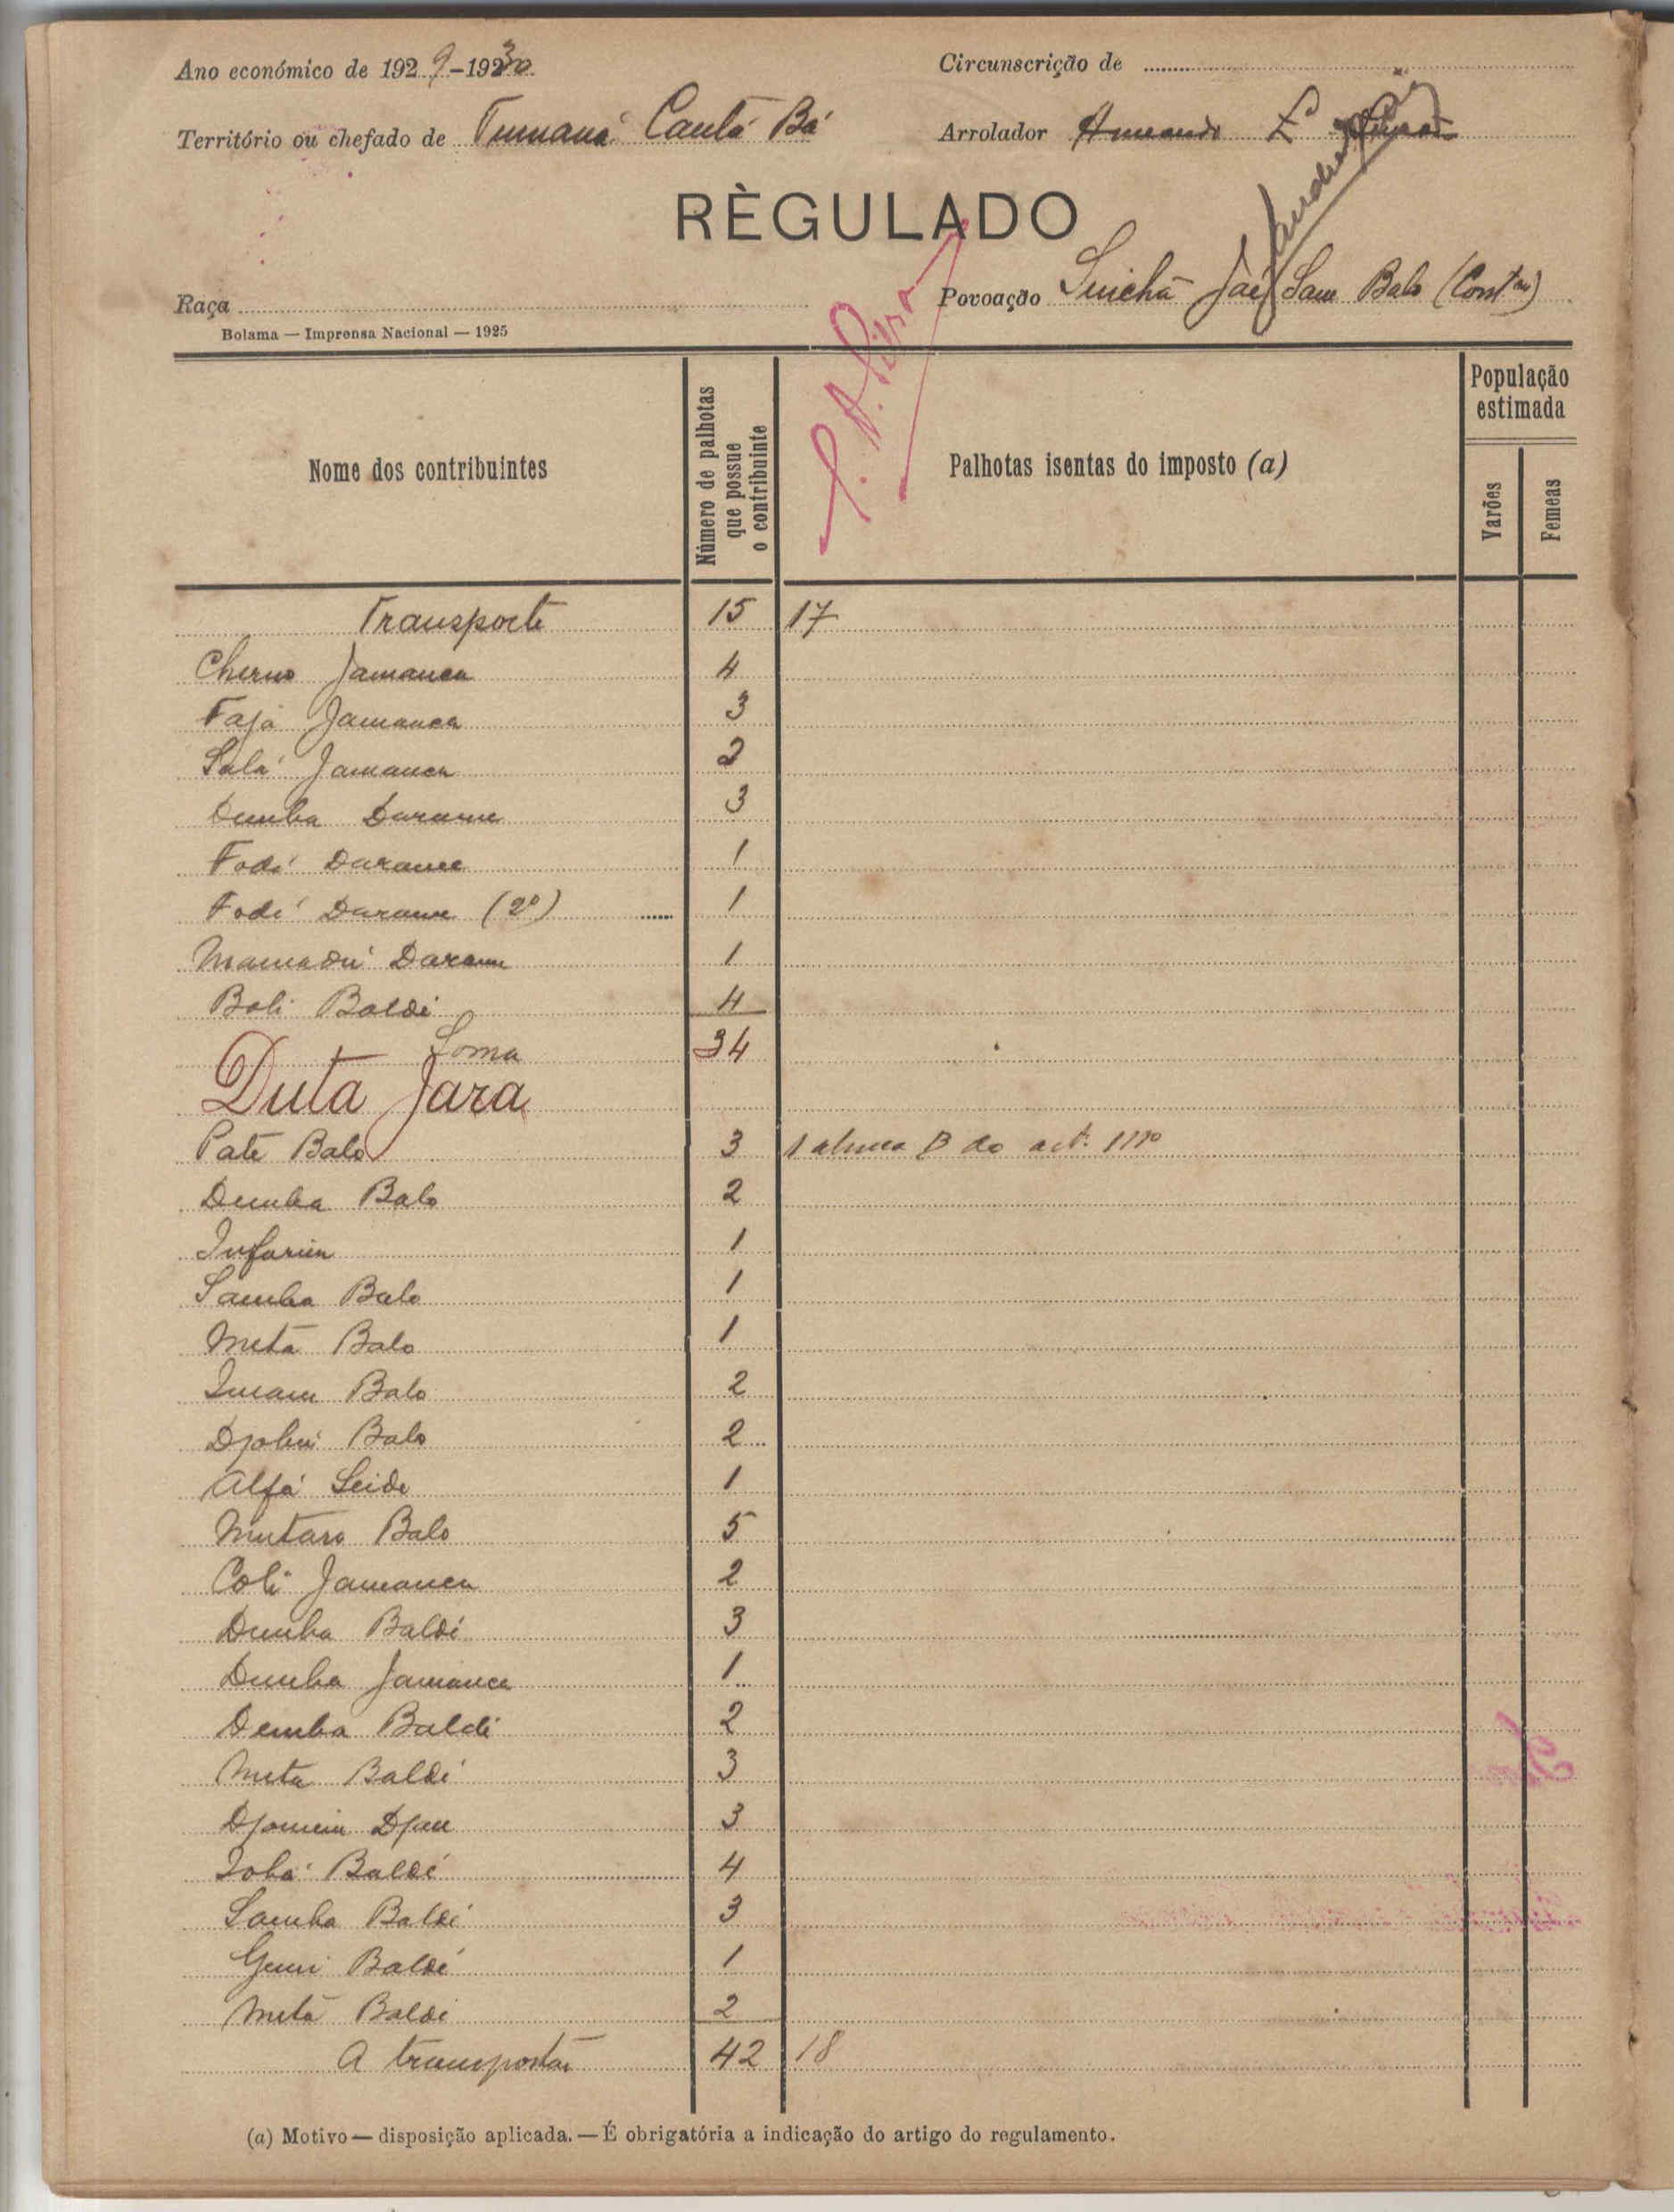 Ano económico de 1929-1930
Circunscrição de
Território ou chefado de Tumaná Cantá Bá
Arrolador Armando L.
RÈGULADO
Raça
Povoação Sinchã Jaé Sam Balo (Contm)
Bolama — Imprensa Nacional — 1925
Nome dos contribuintes
Número de palhotas que possue o contribuinte
Palhotas isentas do imposto (a)
População estimada
Varões
Femeas
Transporte 15 17
Cherno Jamanca 4
Fajá Jamanca 3
Salá Jamanca 2
Demba Darame 3
Fodé Darame 1
Fodé Darame (2º) 1
Mamadú Darame 1
Boli Baldé 4
Soma 34
Duta Jara
Paté Balo 3 1 alinea B do art. 111º
Demba Balo 2
Infarim 1
Samba Balo 1
Metá Balo 1
Imam Balo 2
Djobú Balo 2
Alfá Seide 1
Mutaro Balo 5
Coli Jamanca 2
Demba Baldé 3
Demba Jamanca 1
Demba Baldé 2
Meta Baldé 3
Djau 3
Iobá Baldé 4
Samba Baldé 3
Baldé 1
Metá Baldé 2
A transportar 42 18
(a) Motivo — disposição aplicada. — É obrigatória a indicação do artigo do regulamento.